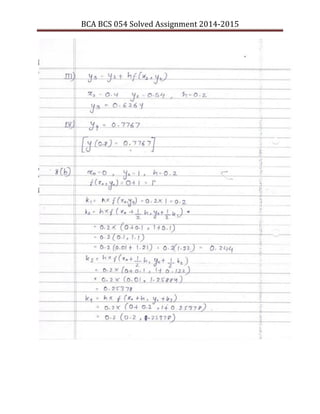 BCA BCS 054 Solved Assignment 2014-2015
III) y₃ = y₂ + hf(x₂, y₂)
x₂ = 0.4 y₂ = 0.54 , h = 0.2
y₃ = 0.6264
y₄ = 0.7767
[y(0.8) = 0.7767]
8(b) x₀ = 0 , y₀ = 1 , h = 0.2
f(x₀, y₀) = 0+1 =
k₁ = h×f(x₀y₀) = 0.2×1 = 0.2
k₂ = h×f(x₀ + 1/2 h, y₀ + 1/2 k₁) =
= 0.2×(0+0.1, 1+0.1)
= 0.2(0.1, 1.1)
= 0.2(0.01 + 1.21) = 0.2(1.22) = 0.244
k₃ = h×f(x₀ + 1/2 h, y₀ + 1/2 k₂)
= 0.2×(0+0.1, 1+0.122)
= 0.2×(0.01, 1.25884)
= 0.25378
k₄ = h×f(x₀+h, y₀+k₃)
= 0.2×(0+0.2, 1+0.25378)
= 0.2(0.2, 1.25378)